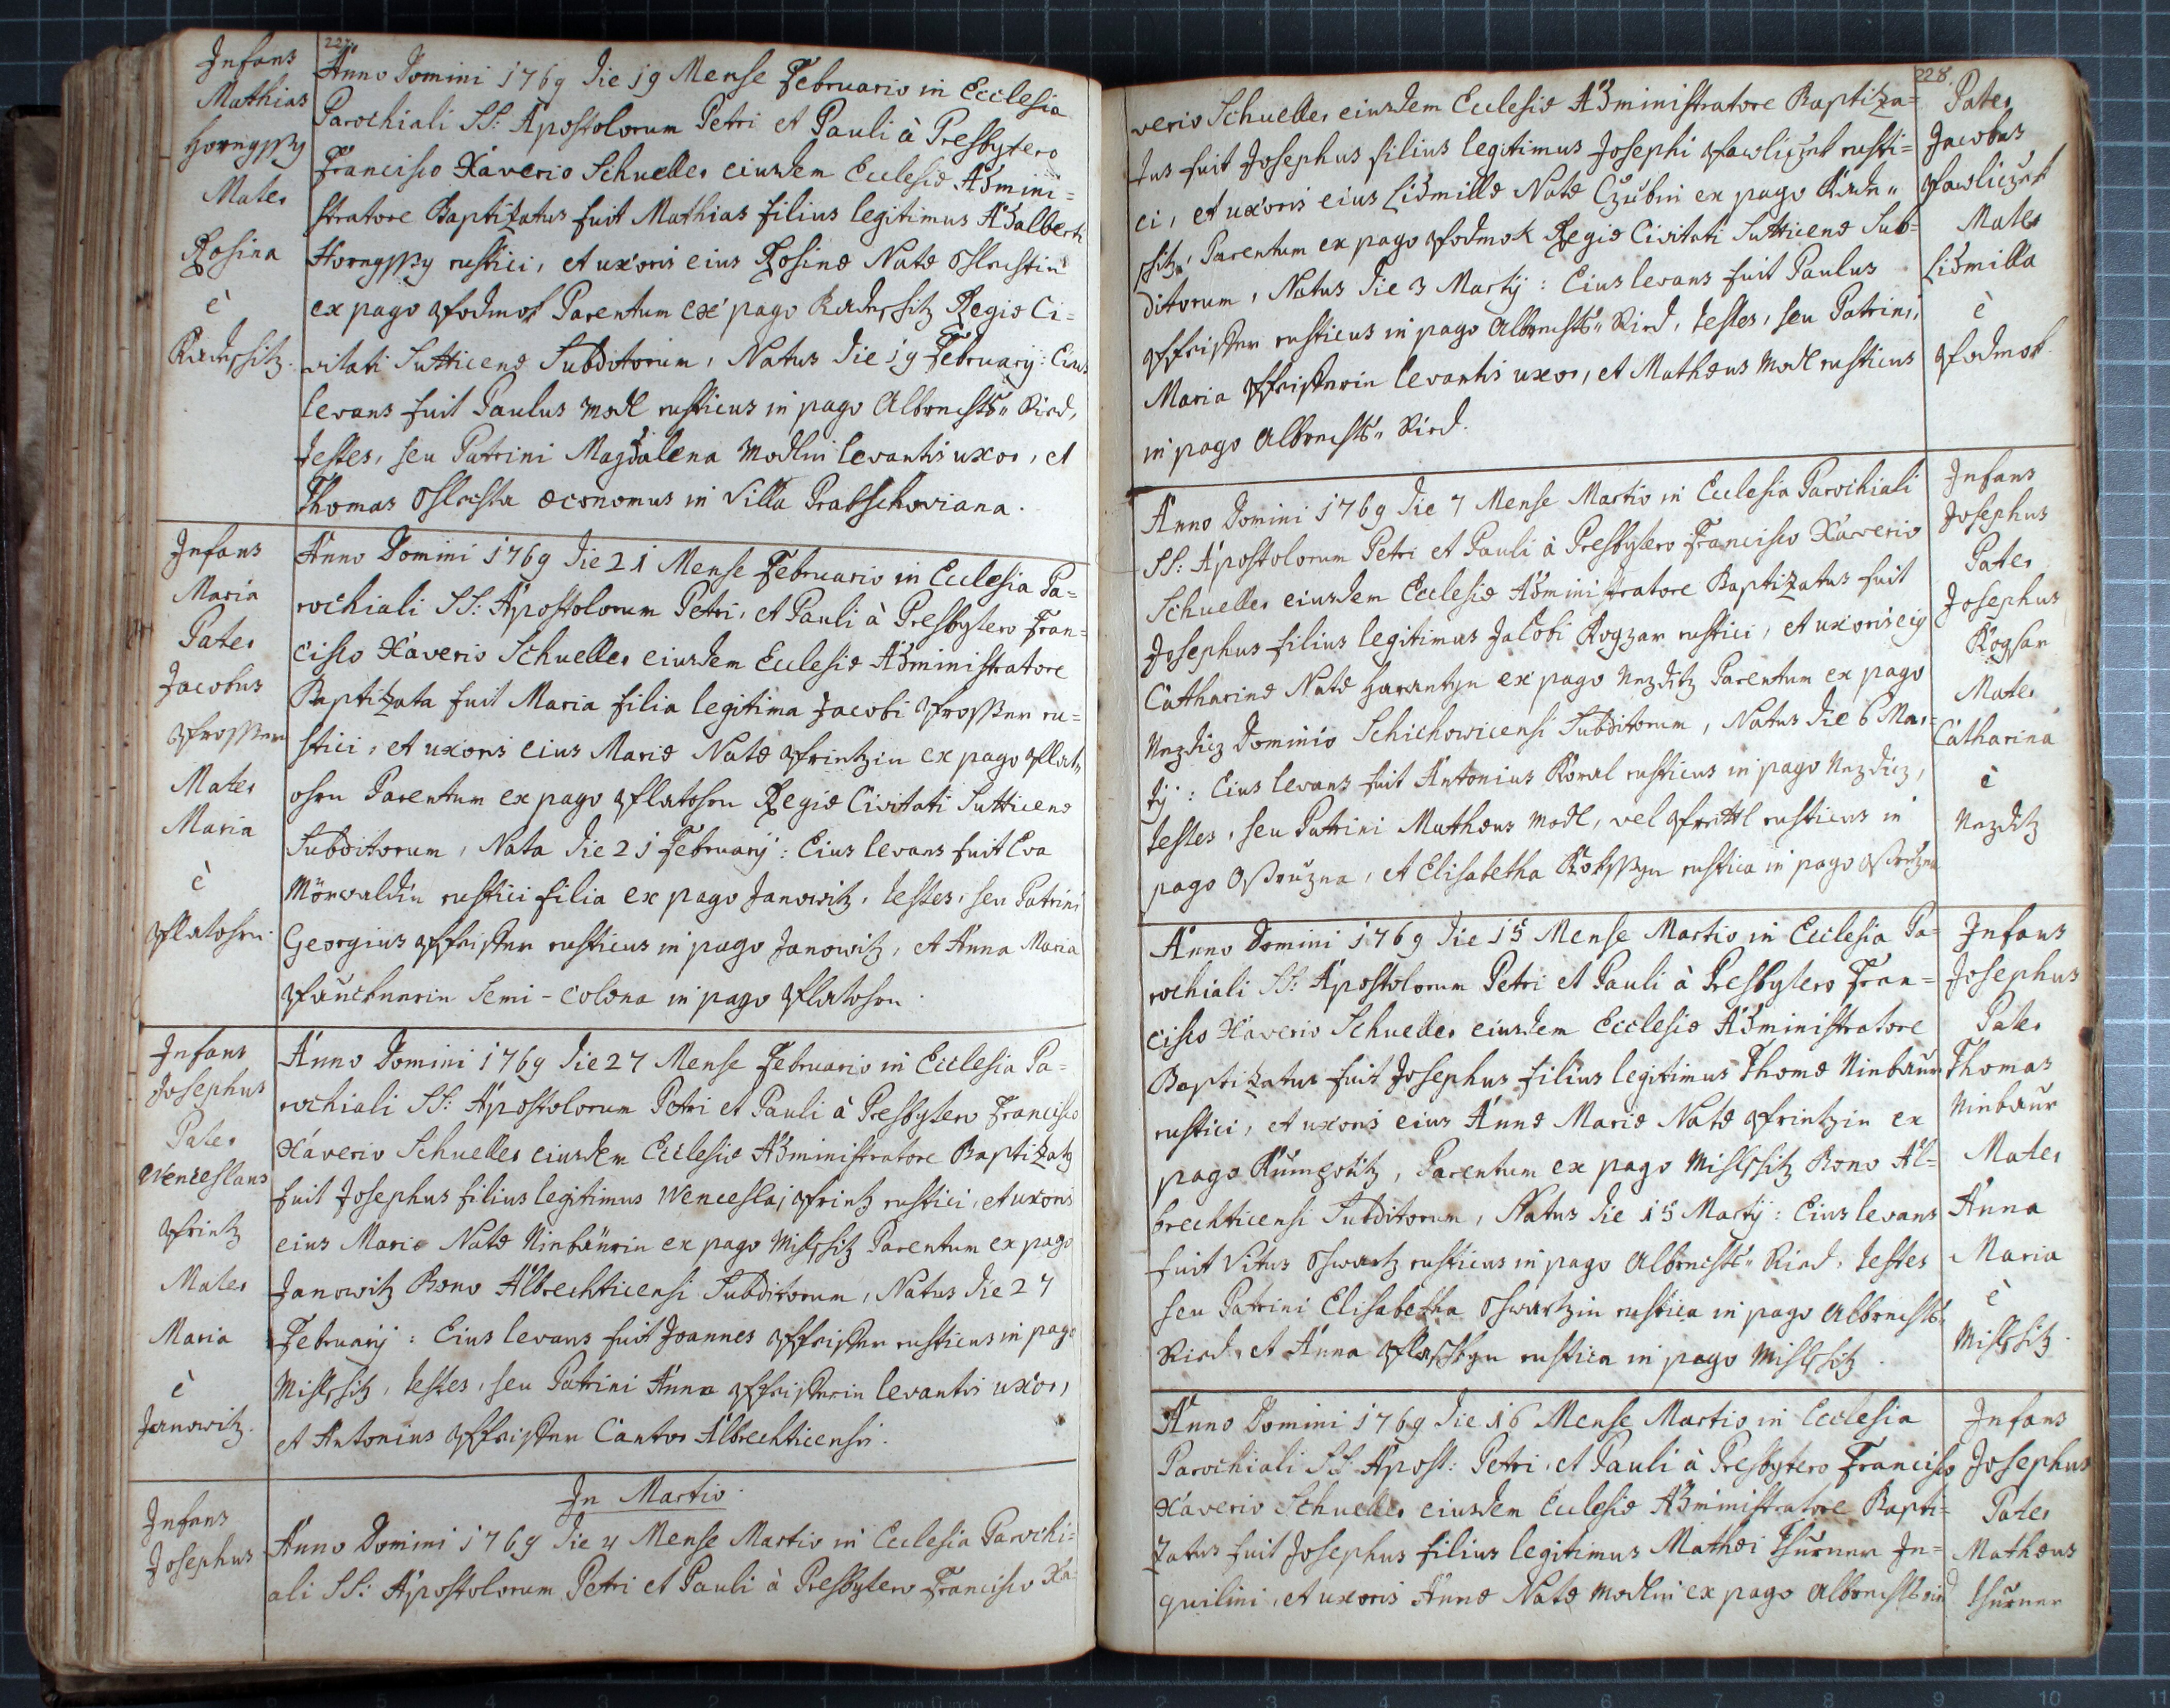 227.
Infans
Mathias
Horngssy
Mater
Rosina
è
Radessitz.
Anno Domini 1769 die 19 Mense Februario in Ecclesia
Parochiali SS: Apostolorum Petri et Pauli à Presbytero
Francisco Xaverio Schueller eiusdem Ecclesiæ Admini=
stratore Baptizatus fuit Mathias filius legitimus Adalberti
Horngssy rustici, et uxoris eius Rosinæ Natæ
ex pago Podmok Parentum ex pago Radessitz Regiæ Ci=
vitati Sutticenæ Subditorum, Natus die 19 February: Eius
levans fuit Paulus Modl rusticus in pago Albrechts" Ried,
testes, seu Patrini Magdalena Modlin levantis uxor, et
Thomas œconomus in Villa Pratschoviana.
Infans
Maria
Pater
Jacobus
Prosser
Mater
Maria
è
Platohrn.
Anno Domini 1769 die 21 Mense Februario in Ecclesia Pa=
rochiali SS: Apostolorum Petri, et Pauli à Presbytero Fran=
cisco Xaverio Schueller eiusdem Ecclesiæ Administratore
Baptizata fuit Maria filia legitima Jacobi Prosser ru=
stici, et uxoris eius Mariæ Natæ Printzin ex pago Plat"
ohrn Parentum ex pago Platohrn Regiæ Civitati Sutticenæ
Subditorum, Nata die 21 February: Eius levans fuit Eva
Mörwaldin rustici filia ex pago Janowitz, testes, seu Patrini
Georgius Pfeister rusticus in pago Janowitz, et Anna Maria
Paucknerin Semi-colona in pago Platohrn.
Infans
Josephus
Pater
Wenceslaus
Printz
Mater
Maria
è
Janowitz.
Anno Domini 1769 die 27 Mense Februario in Ecclesia Pa=
rochiali SS: Apostolorum Petri et Pauli à Presbytero Francisco
Xaverio Schueller eiusdem Ecclesiæ Administratore Baptizatg
fuit Josephus filius legitimus Wenceslaj Printz rustici, et uxoris
eius Mariæ Natæ Ninbaurin ex pago Mislssitz Parentum ex pago
Janowitz Bono Albrechticensi Subditorum, Natus die 27
February: Eius levans fuit Joannes Pfeister rusticus in pago
Mislssitz, testes, seu Patrini Anna Pfeisterin levantis uxor,
et Antonius Pfeister Cantor Albrechticensis.
In Martio
Infans
Josephus
Anno Domini 1769 die 4 Mense Martio in Ecclesia Parochi=
ali SS: Apostolorum Petri et Pauli à Presbytero Francisco Xa=
228.
verio Schueller eiusdem Ecclesiæ Administratore Baptiza=
tus fuit Josephus filius legitimus Josephi Pawliczek rusti=
ci, et uxoris eius Lidmillæ Natæ Czubin ex pago Rade"
ssitz, Parentum ex pago Podmok Regiæ Civitati Sutticenæ Sub=
ditorum, Natus die 3 Martij: Eius levans fuit Paulus
Pfeister rusticus in pago Albrechts" Ried, testes, seu Patrini,
Maria Pfeisterin levantis uxor, et Mathæus Modl rusticus
in pago Albrechts" Ried.
Pater
Jacobus
Pawliczek
Mater
Lidmilla
è
Podmok.
Anno Domini 1769 die 7 Mense Martio in Ecclesia Parochiali
SS: Apostolorum Petri et Pauli à Presbytero Francisco Xaverio
Schueller eiusdem Ecclesiæ Administratore Baptizatus fuit
Josephus filius legitimus Jacobi Rogzar rustici, et uxoris eig
Catharinæ Natæ Harantyn ex pago Nezditz Parentum ex pago
Nezdicz Dominio Schichowicensi Subditorum, Natus die 6 Mar=
tij: Eius levans fuit Antonius Koral rusticus in pago Nezdicz,
testes, seu Patrini Mathæus Modl, vel rusticus in
pago Ostružna, et Elisabetha rustica in pago Ostružna
Infans
Josephus
Pater
Josephus
Rogsar
Mater
Catharina
è
Nezditz
Anno Domini 1769 die 15 Mense Martio in Ecclesia Pa=
rochiali SS: Apostolorum Petri et Pauli à Presbytero Fran=
cisco Xaverio Schueller eiusdem Ecclesiæ Administratore
Baptizatus fuit Josephus filius legitimus Thomæ Ninbaur
rustici, et uxoris eius Annæ Mariæ Natæ Printzin ex
pago Kumpotitz, Parentum ex pago Mislssitz Bono Al=
brechticensi Subditorum, Natus die 15 Martij: Eius levans
fuit Vitus Schwartz rusticus in pago Albrechts" Ried, testes
seu Patrini Elisabetha Schwartzin rustica in pago Albrechts"
Ried, et Anna rustica in pago Mislssitz.
Infans
Josephus
Pater
Thomas
Ninbaur
Mater
Anna
Maria
è
Mislssitz.
Anno Domini 1769 die 16 Mense Martio in Ecclesia
Parochiali SS. Apost: Petri, et Pauli à Presbytero Francisco
Xaverio Schueller eiusdem Ecclesiæ Administratore Bapti=
zatus fuit Josephus filius legitimus Mathæi Thurner In=
quilini, et uxoris Annæ Natæ Modlin ex pago Albrechtsried
Infans
Josephus
Pater
Mathæus
Thurner